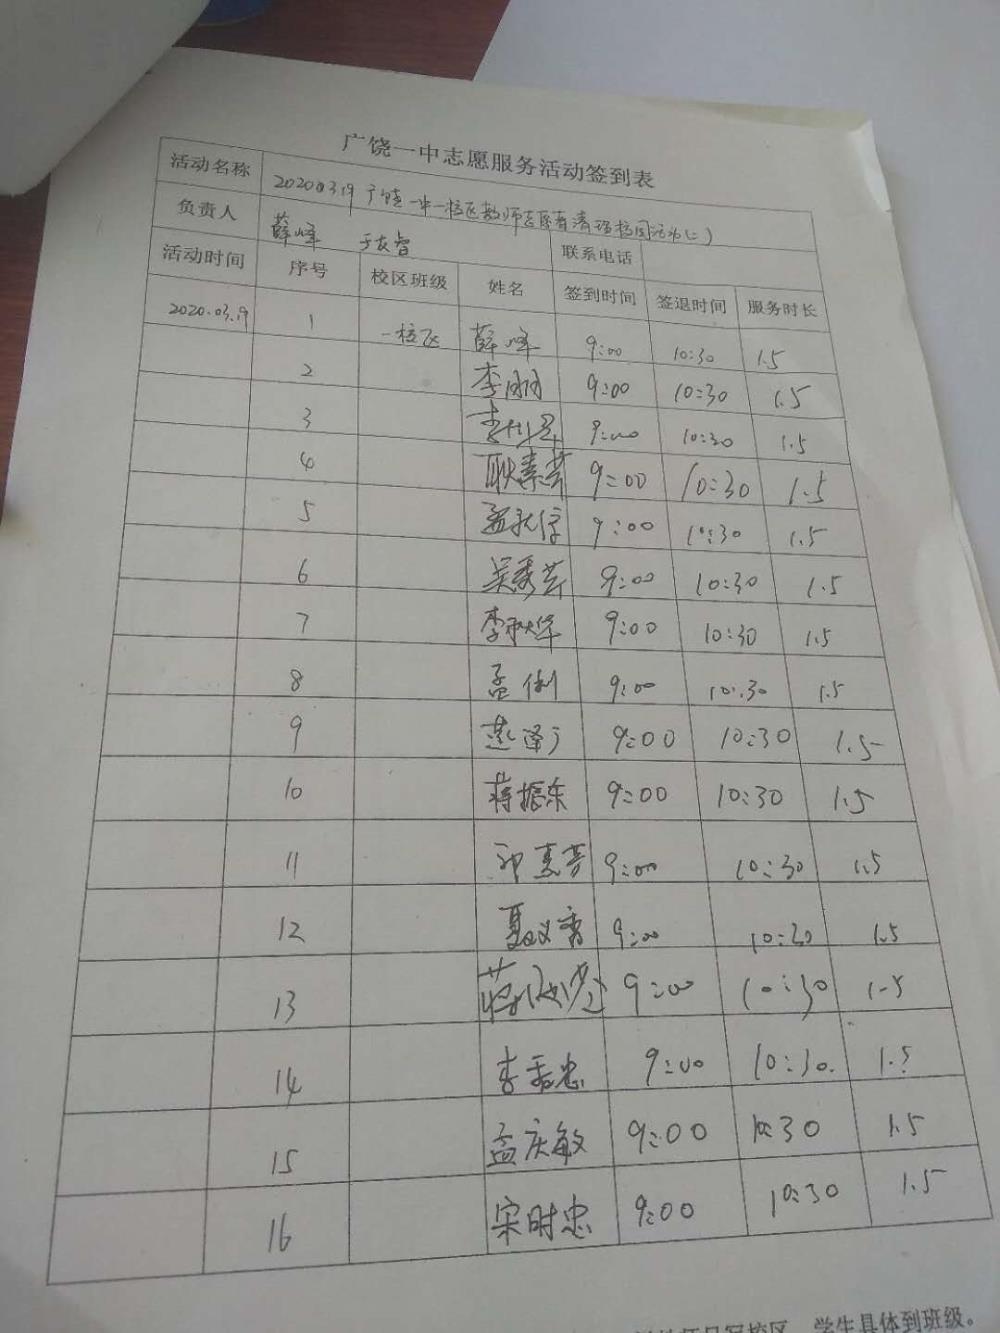 广饶一中志愿服务活动签到表
活动名称 20200319广饶一中一校区教师志愿者清扫校园活动(二)
负责人 薛峰 于友智 联系电话
活动时间 序号 校区班级 姓名 签到时间 签退时间 服务时长
2020.03.19 1 一校区 薛峰 9:00 10:30 1.5
2 李刚 9:00 10:30 1.5
3 9:00 10:30 1.5
4 耿素芳 9:00 10:30 1.5
5 孟秋信 9:00 10:30 1.5
6 吴秀芹 9:00 10:30 1.5
7 李秋华 9:00 10:30 1.5
8 孟俐 9:00 10:30 1.5
9 9:00 10:30 1.5
10 蒋振东 9:00 10:30 1.5
11 9:00 10:30 1.5
12 9:00 10:30 1.5
13 9:00 10:30 1.5
14 9:00 10:30. 1.5
15 孟庆敏 9:00 10:30 1.5
16 宋时忠 9:00 10:30 1.5
写校区，学生具体到班级。